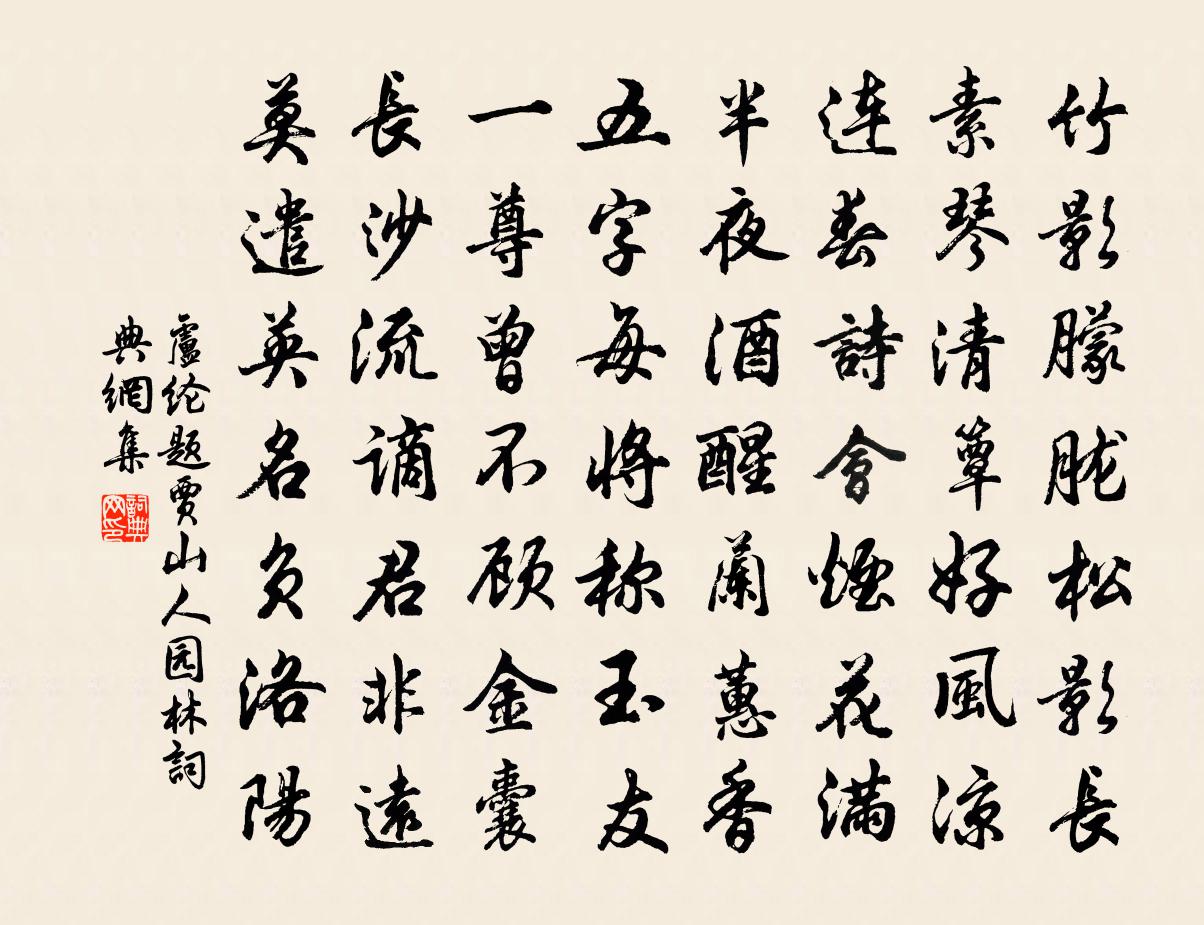 竹影朦胧松影長
素琴清簟好風涼
連春詩會煙花滿
半夜酒醒蘭蕙香
五字每將称玉友
一尊曾不顾金囊
長沙流謫君非遠
莫遣英名負洛陽
盧纶题賈山人园林詞
典網集
詞典
网印